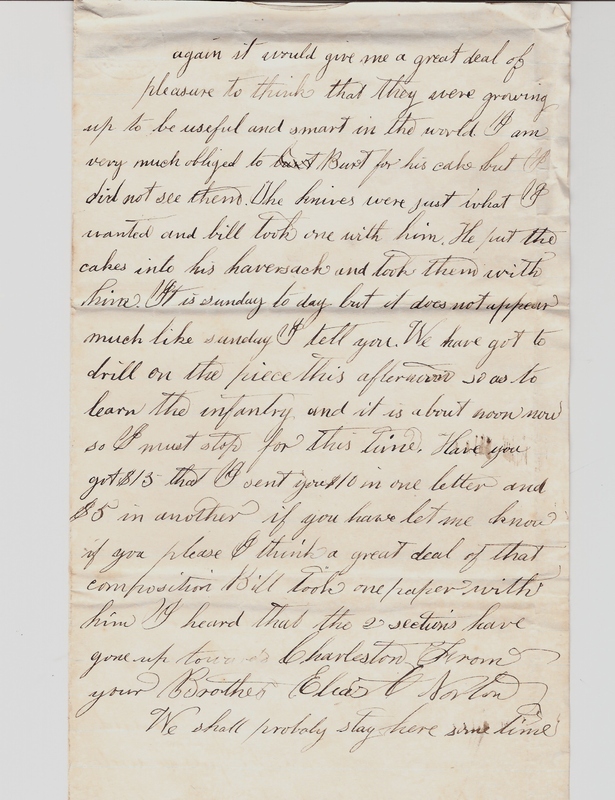 again it would give me a great deal of
pleasure to think that they were growing
up to be useful and smart in the world I am
very much obliged to Burt for his cake but I
did not see them. The knives were just what I
wanted and bill took one with him. He put the
cakes into his haversack and took them with
him. It is sunday to day but it does not appear
much like sunday I tell you. We have got to
drill on the piece this afternoon so as to
learn the infantry and it is about noon now
so I must stop for this time. Have you
got $15 that I sent you $10 in one letter and
$5 in another if you have let me know
if you please I think a great deal of that
composition Bill took one paper with
him I heard that the 2 sections have
gone up towards Charleston From
your Brother Elias C Norton
We shall probaly stay here some time